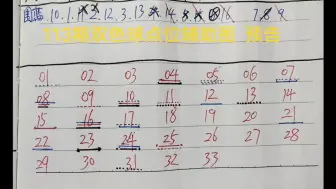 围蓝 10. 1. 2. 12. 3. 13 14 16 7. 8 9
113期双色球点位辅助图 预告
01 02 03 04 05 06 07
08 09 10 11 12 13 14
15 16 17 18 19 20 21
22 23 24 25 26 27 28
29 30 31 32 33